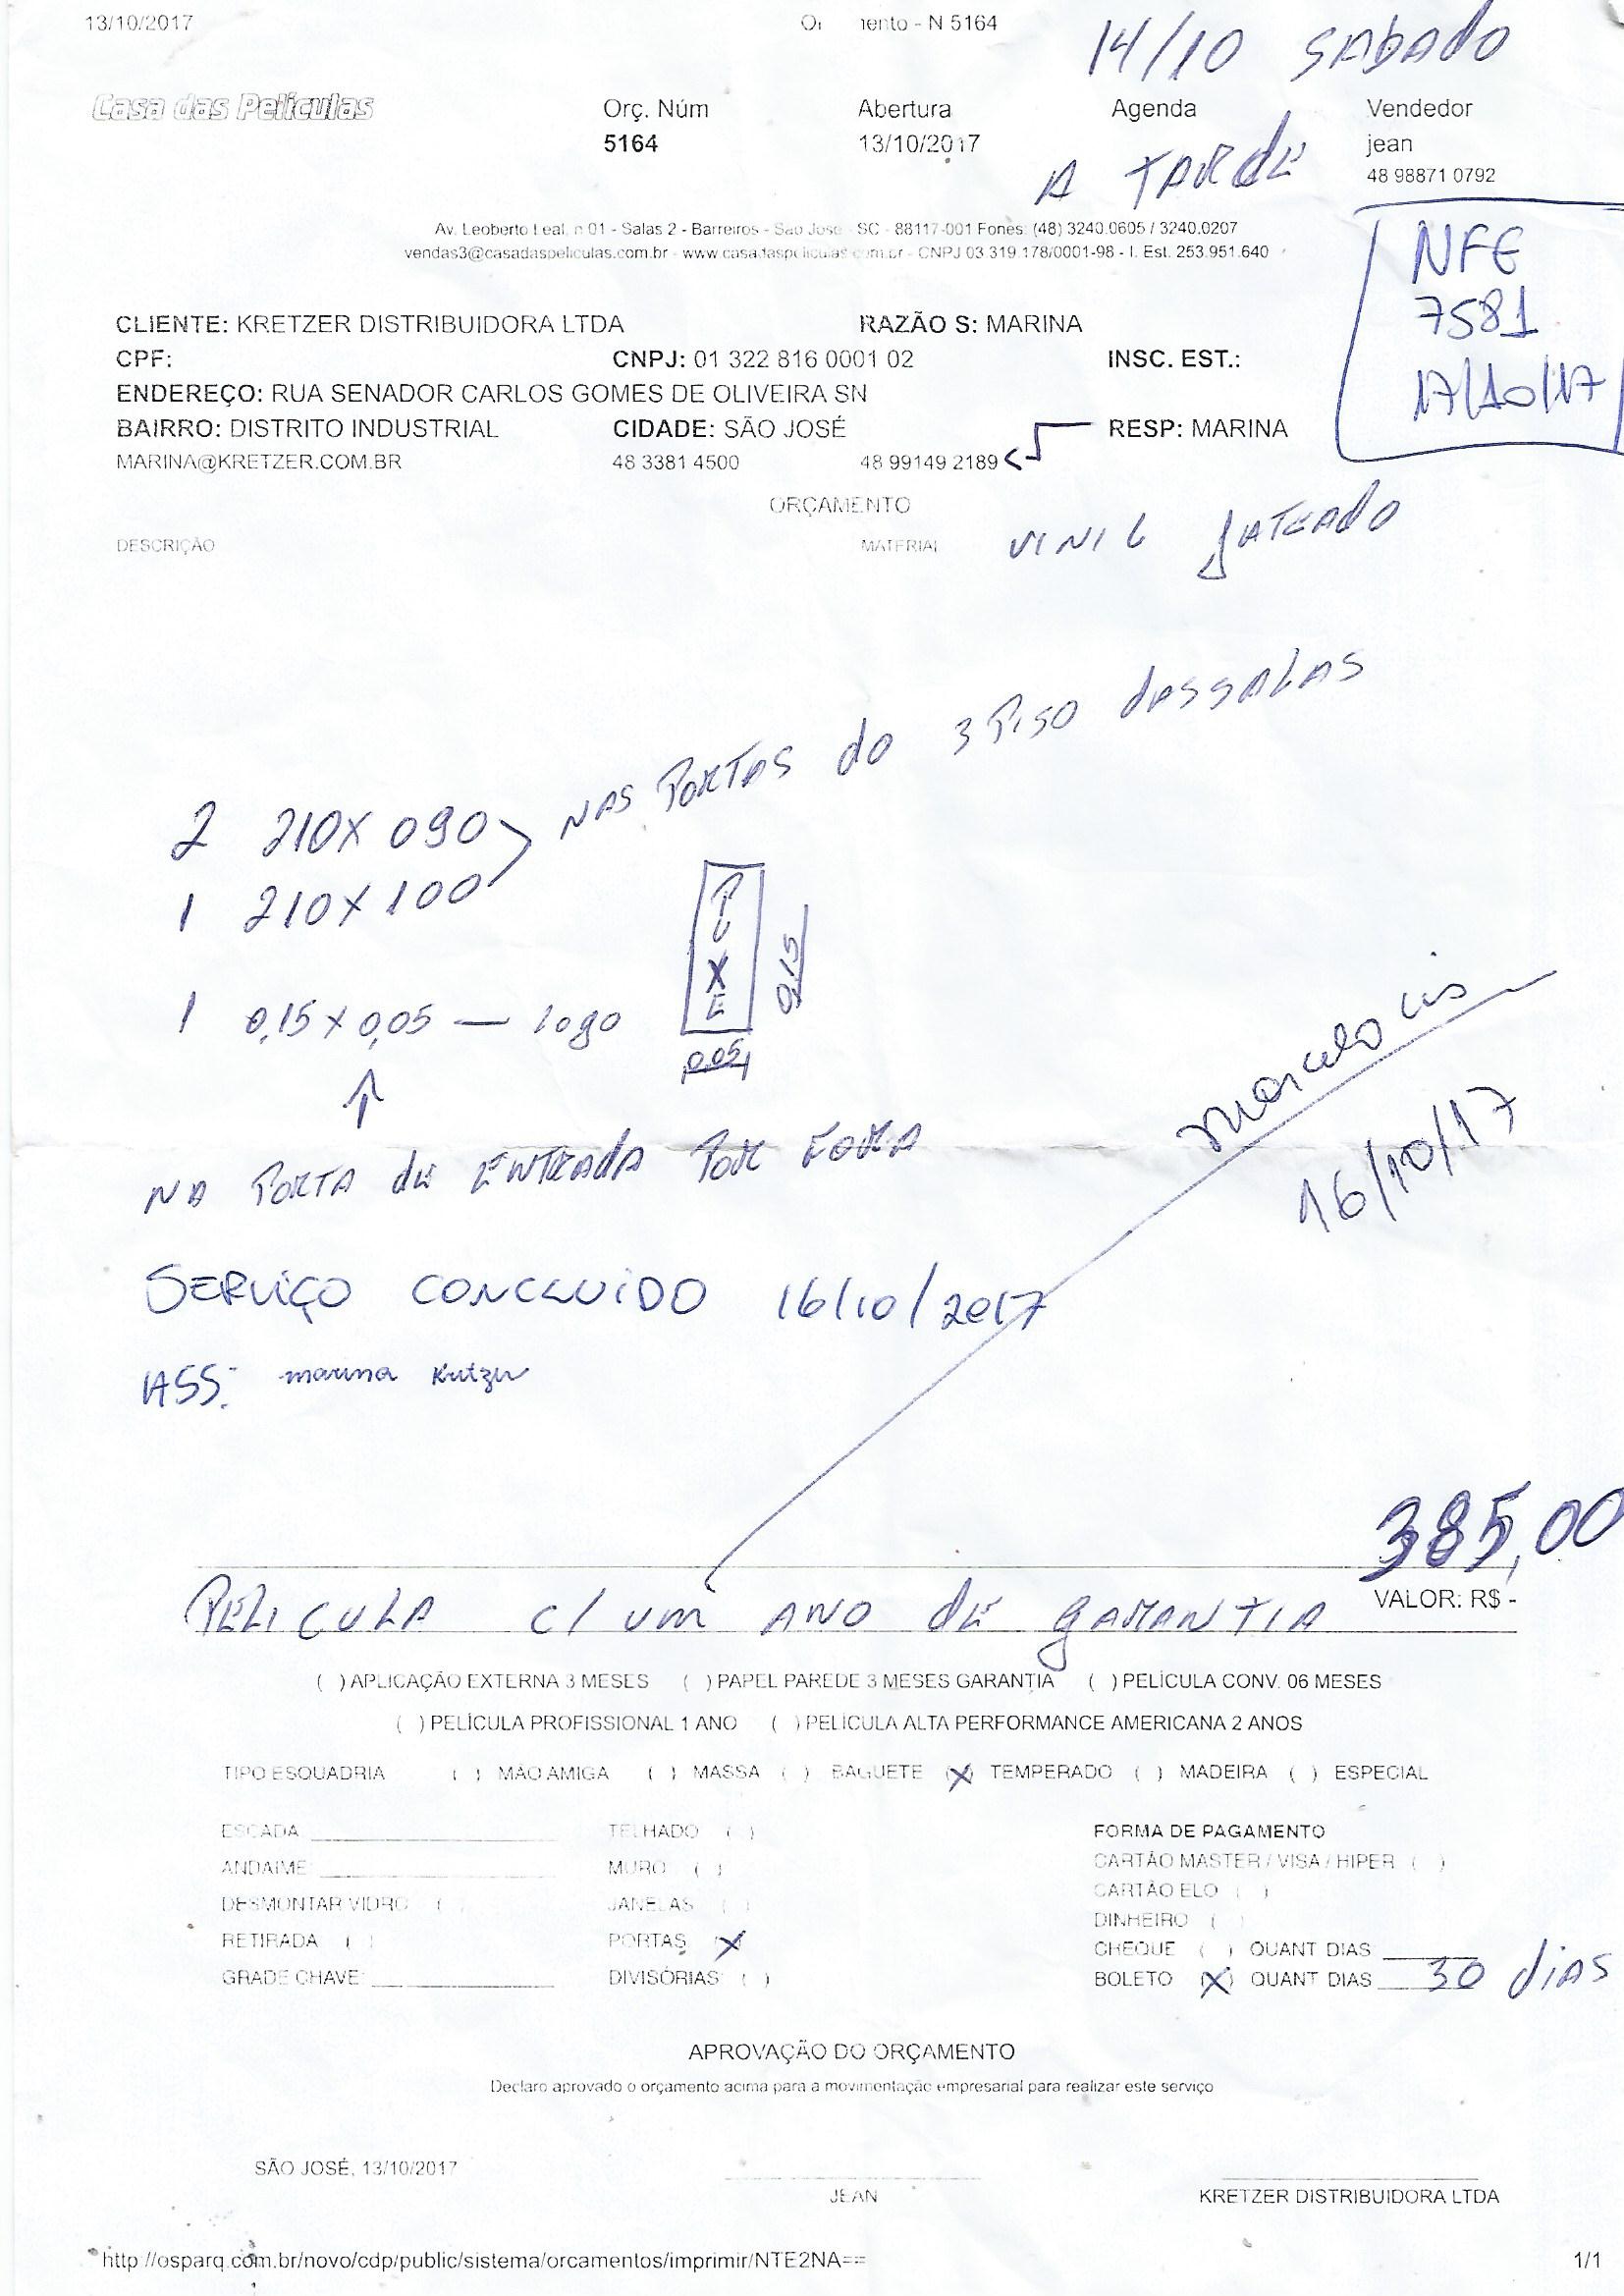 13/10/2017 mento - N 5164
14/10 SABADO
Casa das Películas Orç. Núm Abertura Agenda Vendedor
5164 13/10/2017 A TARDE jean
48 98871 0792
Av. Leoberto Leal, n 01 - Salas 2 - Barreiros - São José - SC - 88117-001 Fones: (48) 3240.0605 / 3240.0207
vendas3@casadaspeliculas.com.br - www.casadaspeliculas.com.br - CNPJ 03 319.178/0001-98 - I. Est. 253.951.640
NFE
7581
17/10/17
CLIENTE: KRETZER DISTRIBUIDORA LTDA RAZÃO S: MARINA
CPF: CNPJ: 01 322 816 0001 02 INSC. EST.:
ENDEREÇO: RUA SENADOR CARLOS GOMES DE OLIVEIRA SN
BAIRRO: DISTRITO INDUSTRIAL CIDADE: SÃO JOSÉ RESP: MARINA
MARINA@KRETZER.COM.BR 48 3381 4500 48 99149 2189
ORÇAMENTO
DESCRIÇÃO MATERIAL VINIL JATEADO
2 210X090 NAS PORTAS do 3 PISO dASSALAS
1 210X100
1 0,15X0,05 — logo
0,15
0,05
NA PORTA dE ENTRADA POR FORA
16/10/17
SERVIÇO CONCLUIDO 16/10/2017
ASS: marina Kretzer
385,00
PELICULA c/ um ANO dE gARANTIA VALOR: R$ -
( ) APLICAÇÃO EXTERNA 3 MESES ( ) PAPEL PAREDE 3 MESES GARANTIA ( ) PELÍCULA CONV. 06 MESES
( ) PELÍCULA PROFISSIONAL 1 ANO ( ) PELÍCULA ALTA PERFORMANCE AMERICANA 2 ANOS
TIPO ESQUADRIA ( ) MÃO AMIGA ( ) MASSA ( ) BAGUETE (X) TEMPERADO ( ) MADEIRA ( ) ESPECIAL
ESCADA TELHADO ( ) FORMA DE PAGAMENTO
ANDAIME MURO ( ) CARTÃO MASTER / VISA / HIPER ( )
DESMONTAR VIDRO ( ) JANELAS ( ) CARTÃO ELO ( )
DINHEIRO ( )
RETIRADA ( ) PORTAS (X) CHEQUE ( ) QUANT DIAS
GRADE CHAVE: DIVISÓRIAS ( ) BOLETO (X) QUANT DIAS 30 dIAS
APROVAÇÃO DO ORÇAMENTO
Declaro aprovado o orçamento acima para a movimentação empresarial para realizar este serviço
SÃO JOSÉ, 13/10/2017
JEAN KRETZER DISTRIBUIDORA LTDA
http://osparq.com.br/novo/cdp/public/sistema/orcamentos/imprimir/NTE2NA== 1/1